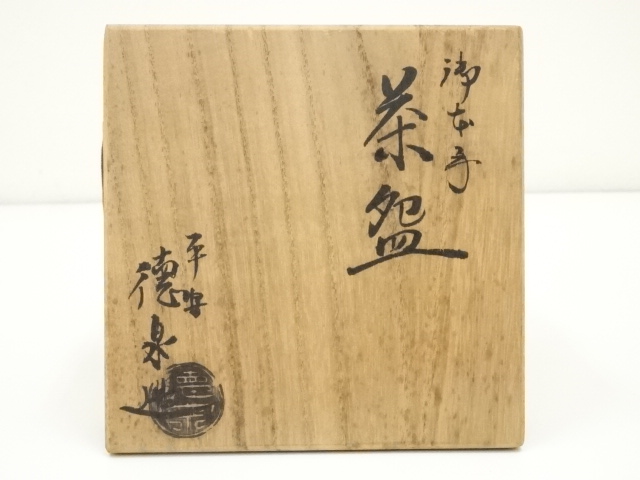 御本手
茶盌
平安
徳泉造